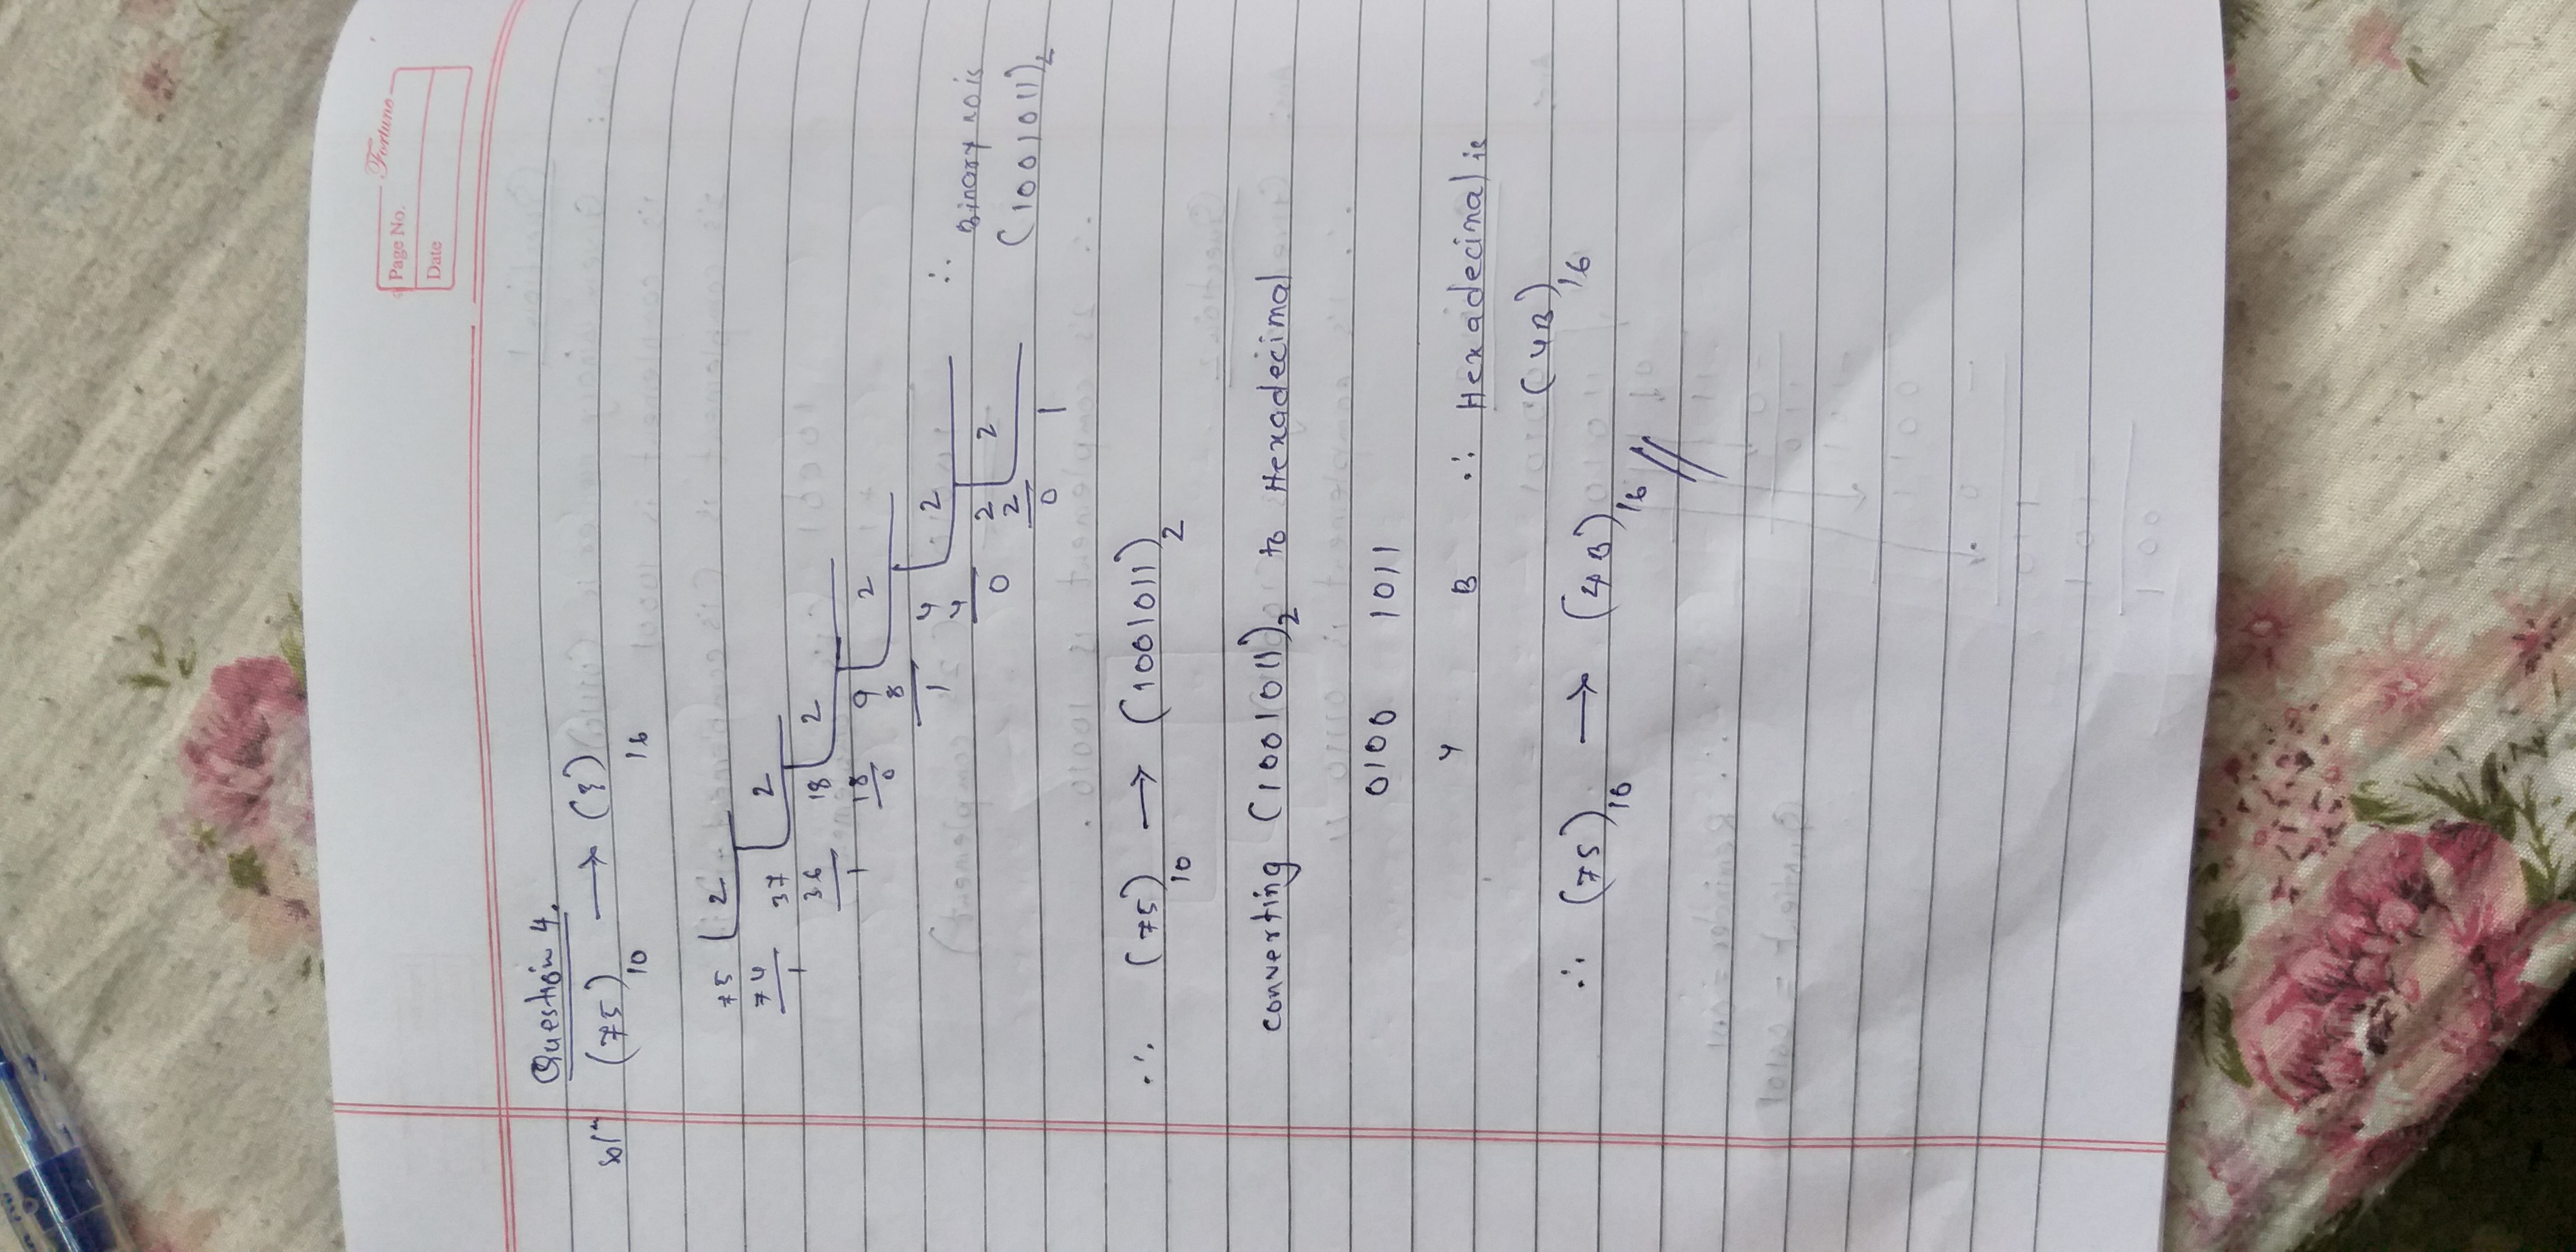 Fortune
Page No.
Date
Question 4.
Solⁿ (75)10 → (?)16
75 2
74 37 2
1 36 18 2
1 18 9 2
0 8 4 2
1 4 2 2
0 2 1
0
∴ Binary no is
(1001011)2
∴ (75)10 → (1001011)2
converting (1001011)2 to Hexadecimal
0100 1011
4 B ∴ Hexadecimal is
(4B)16
∴ (75)10 → (4B)16 //